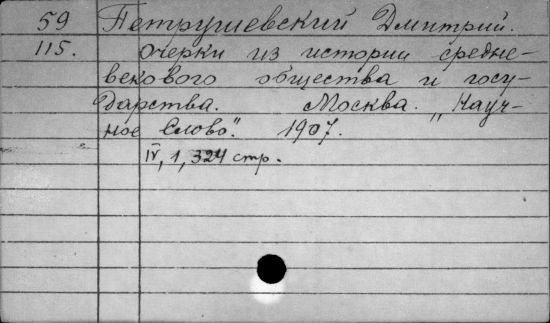 59 Петрушевский Дмитрий.
115. Очерки из истории средне-
векового общества и госу-
дарства. Москва. „Науч-
ное Слово". 1907.
IV, 1, 324 стр.